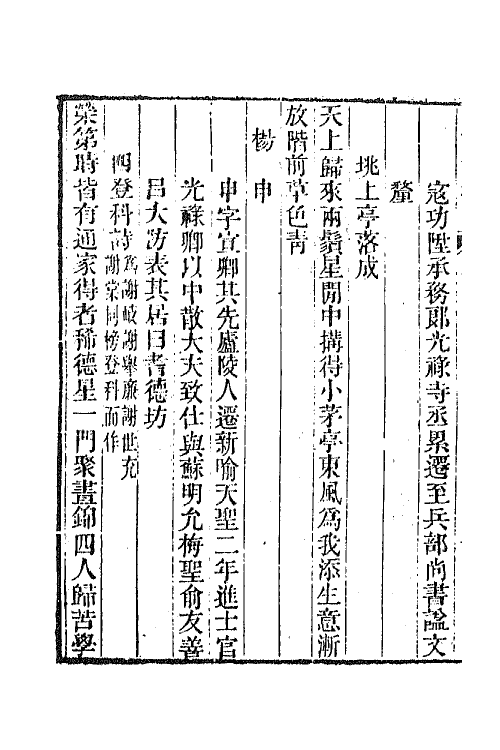 寇功陞承務郎光祿寺丞累遷至兵部尚書諡文
釐
垗上亭落成
天上歸來兩鬢星閒中搆得小茅亭東風為我添生意漸
放階前草色靑
楊申
申字宣卿其先廬陵人遷新喻天聖二年進士官
光祿卿以中散大夫致仕與蘇明允梅聖俞友善
呂大防表其居曰耆德坊
四登科詩為謝岐謝舉廉謝世充
謝棠同榜登科而作
榮第時皆有通家得者稀德星一門聚晝錦四人歸苦學